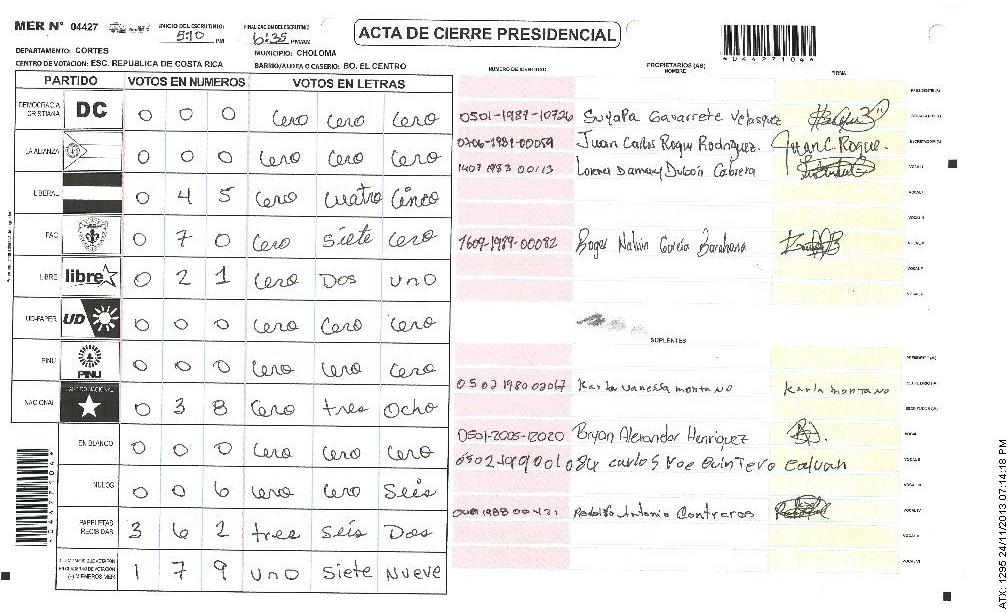 MER Nº 04427 INICIO DEL ESCRUTINIO: 5:10 PM FINALIZACION DEL ESCRUTINIO 6:35 PM/AM
ACTA DE CIERRE PRESIDENCIAL
*04427104*
DEPARTAMENTO: CORTES MUNICIPIO: CHOLOMA
CENTRO DE VOTACION: ESC. REPUBLICA DE COSTA RICA BARRIO/ALDEA O CASERIO: BO. EL CENTRO
NUMERO DE IDENTIDAD PROPIETARIOS (AS) NOMBRE FIRMA
PARTIDO VOTOS EN NUMEROS VOTOS EN LETRAS
DEMOCRACIA CRISTIANA DC 0 0 0 Cero Cero Cero
LA ALIANZA 0 0 0 Cero Cero Cero
LIBERAL 0 4 5 Cero Cuatro Cinco
PAC 0 7 0 Cero Siete Cero
LIBRE libre 0 2 1 Cero Dos uno
UD-FAPER UD 0 0 0 Cero Cero Cero
PINU PINU 0 0 0 Cero Cero Cero
NACIONAL 0 3 8 Cero tres Ocho
EN BLANCO 0 0 0 Cero Cero Cero
NULOS 0 0 6 Cero Cero Seis
PAPELETAS RECIBIDAS 3 6 2 tres Seis Dos
1 7 9 uno Siete Nueve
0501-1987-10726 Suyapa Gavarrete Velasquez
0706-1981-00059 Juan Carlos Roque Rodriguez. Juan C. Roque.
1407 1983 00113 Lorena Damary Dubón Cabrera
1609-1989-00082 Roger Nahún García Barahona
SUPLENTES
0502 1980 02067 Karla vanessa montano Karla montano
0501-2005-12020 Bryan Alexander Henriquez
Carlos Noe Quintero
Rodolfo Antonio Contreras
*04427104*
ATX: 1295 24/11/2013 07:14:18 PM